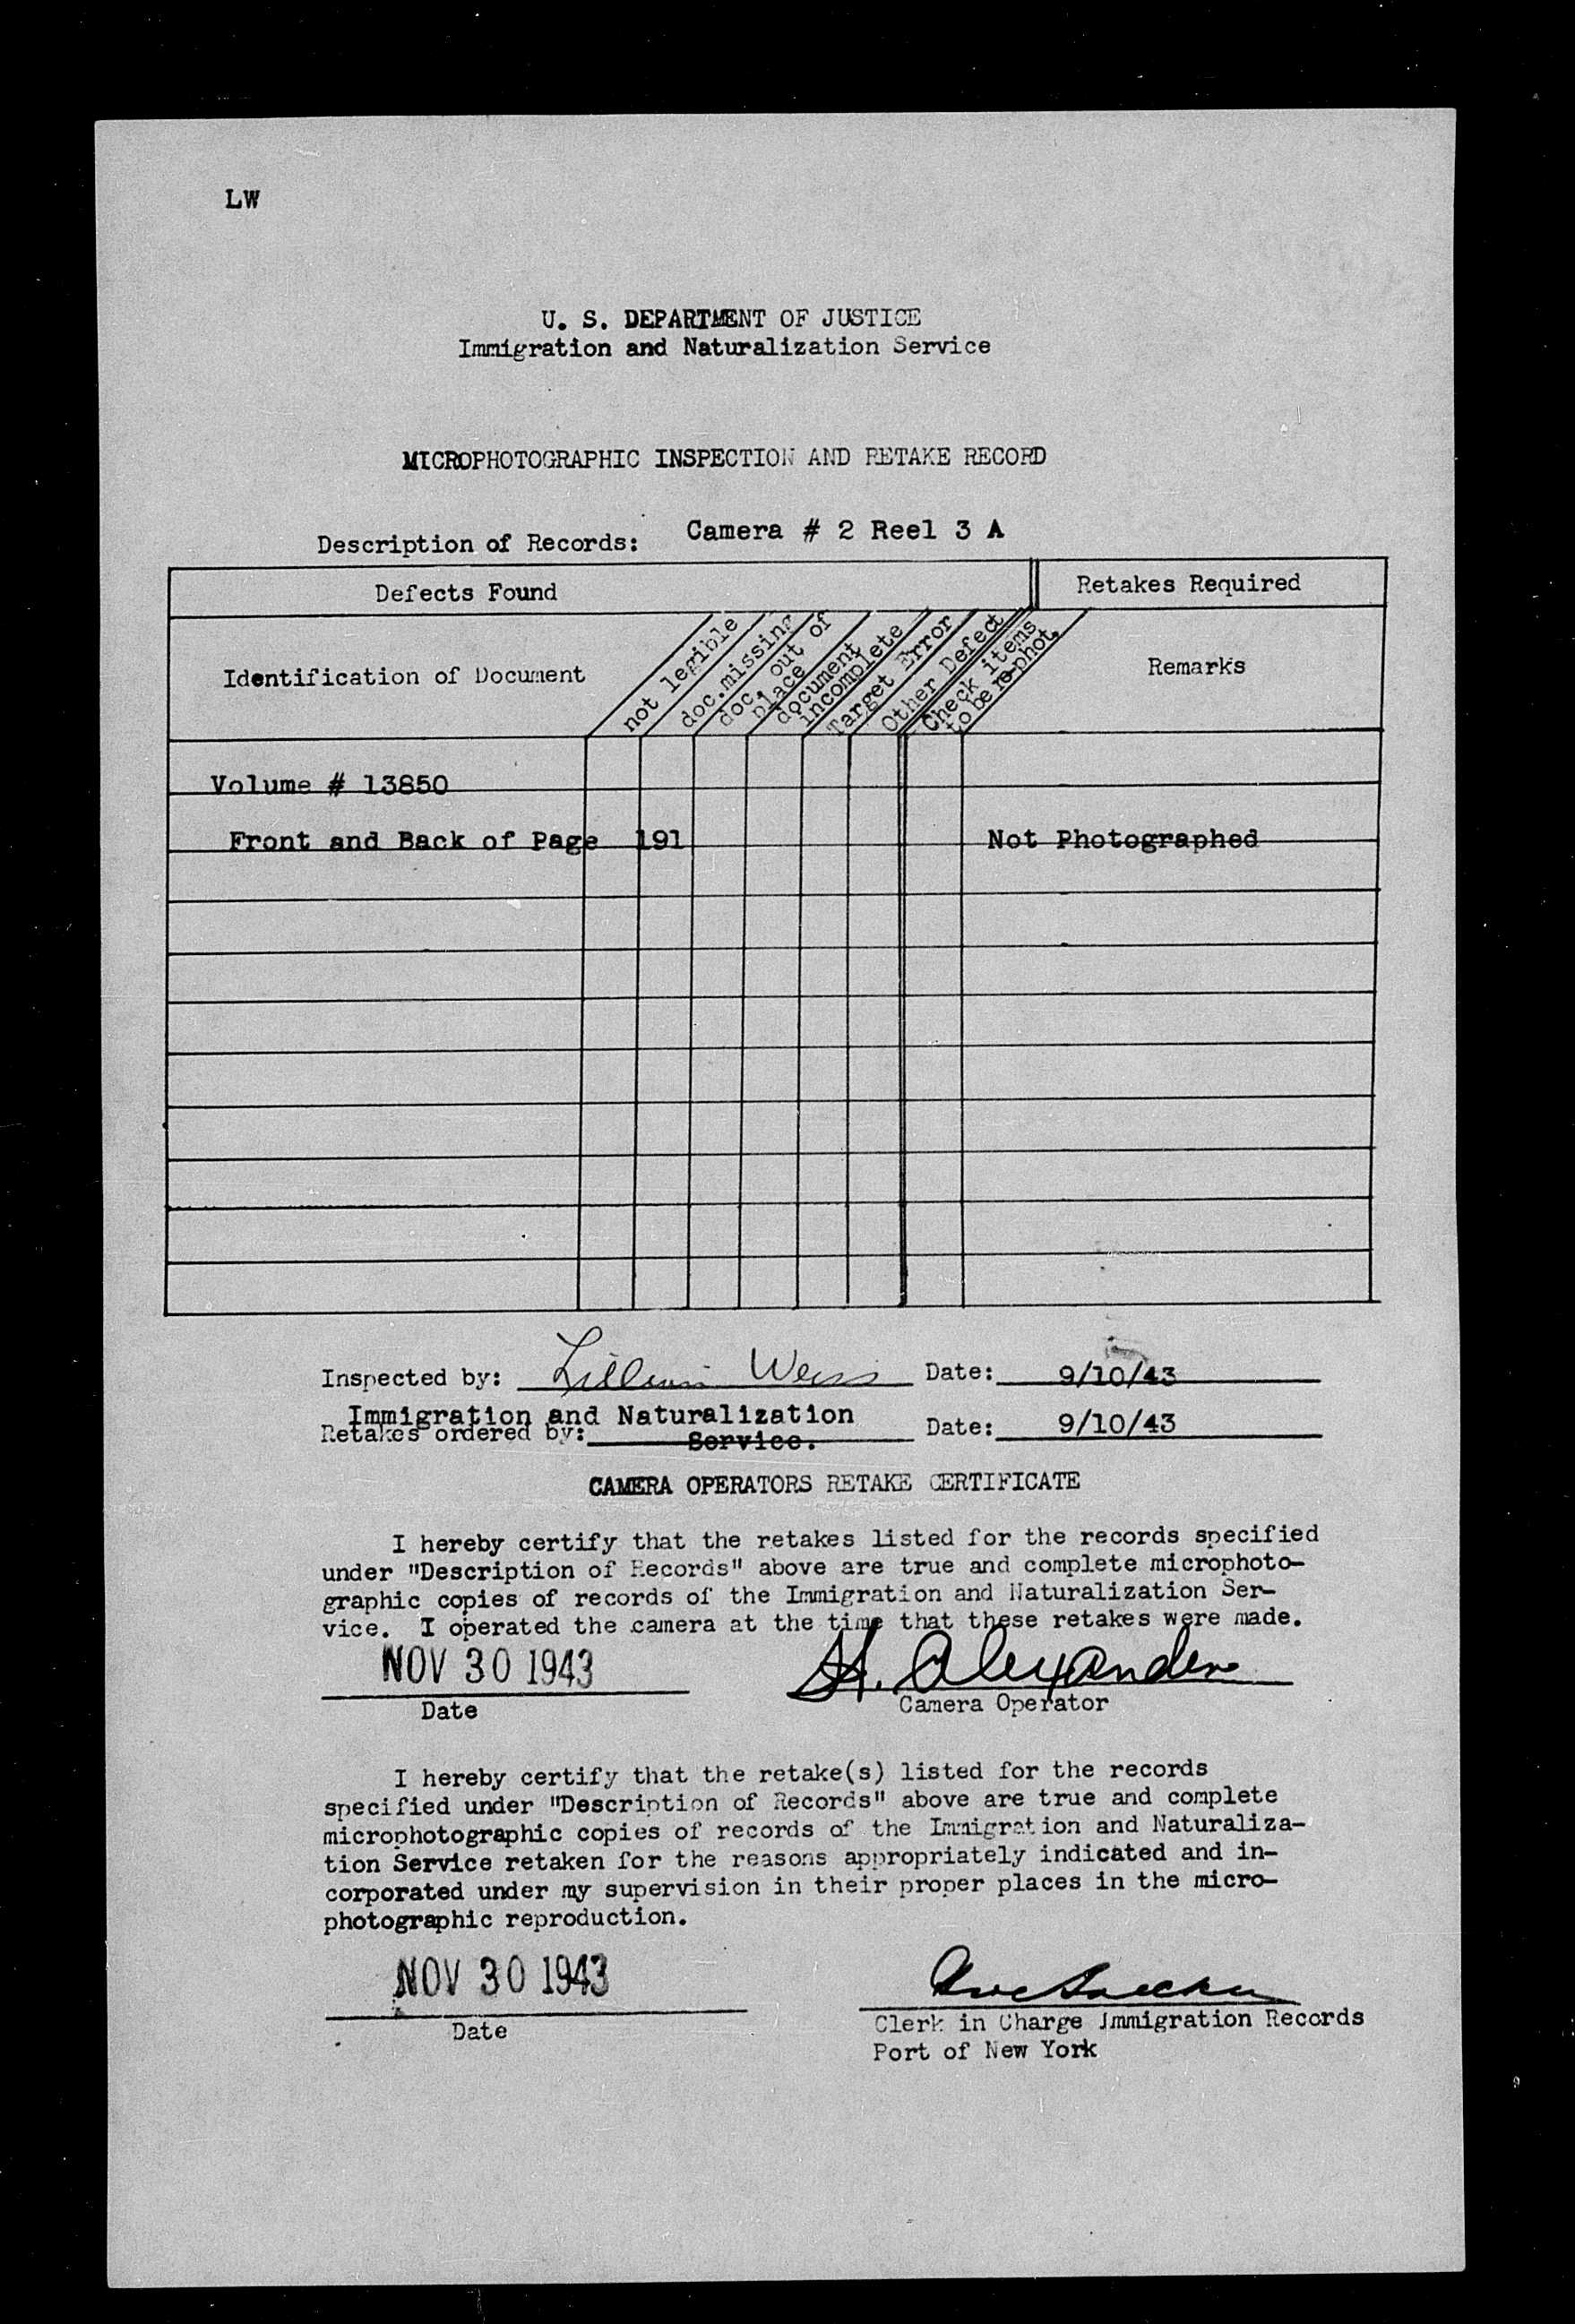 LW
U. S. DEPARTMENT OF JUSTICE
Immigration and Naturalization Service
MICROPHOTOGRAPHIC INSPECTION AND RETAKE RECORD
Description of Records: Camera # 2 Reel 3 A
Defects Found
Retakes Required
Identification of Document
not legible
doc.missing
doc. out of
place
document
incomplete
Target Error
Other Defect
Check items
to be re-phot.
Remarks
Volume # 13850
Front and Back of Page 191 Not Photographed
Inspected by: Lillian Weiss Date: 9/10/43
Immigration and Naturalization
Retakes ordered by: Service. Date: 9/10/43
CAMERA OPERATORS RETAKE CERTIFICATE
I hereby certify that the retakes listed for the records specified
under "Description of Records" above are true and complete microphoto-
graphic copies of records of the Immigration and Naturalization Ser-
vice. I operated the camera at the time that these retakes were made.
NOV 30 1943 H. Alexander
Date Camera Operator
I hereby certify that the retake(s) listed for the records
specified under "Description of Records" above are true and complete
microphotographic copies of records of the Immigration and Naturaliza-
tion Service retaken for the reasons appropriately indicated and in-
corporated under my supervision in their proper places in the micro-
photographic reproduction.
NOV 30 1943
Date
Clerk in Charge Immigration Records
Port of New York